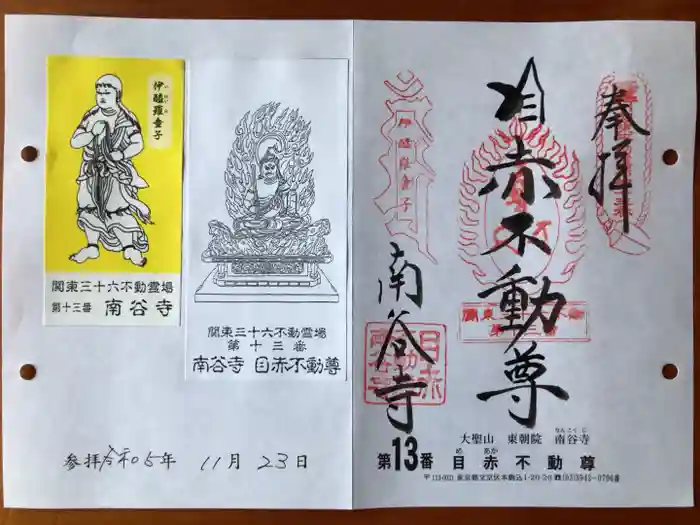 伊醯羅童子
関東三十六不動霊場
第十三番 南谷寺
関東三十六不動霊場
第十三番
南谷寺 目赤不動尊
参拝 令和05年 11月 23日
奉拝
目赤不動尊
南谷寺
伊醯羅童子
関東三十六不動霊場
第十三番
大聖山 東朝院 南谷寺
なんこくじ
第13番 目赤不動尊
め あか
東京都文京区本駒込1-20-20 (03)3945-0796番